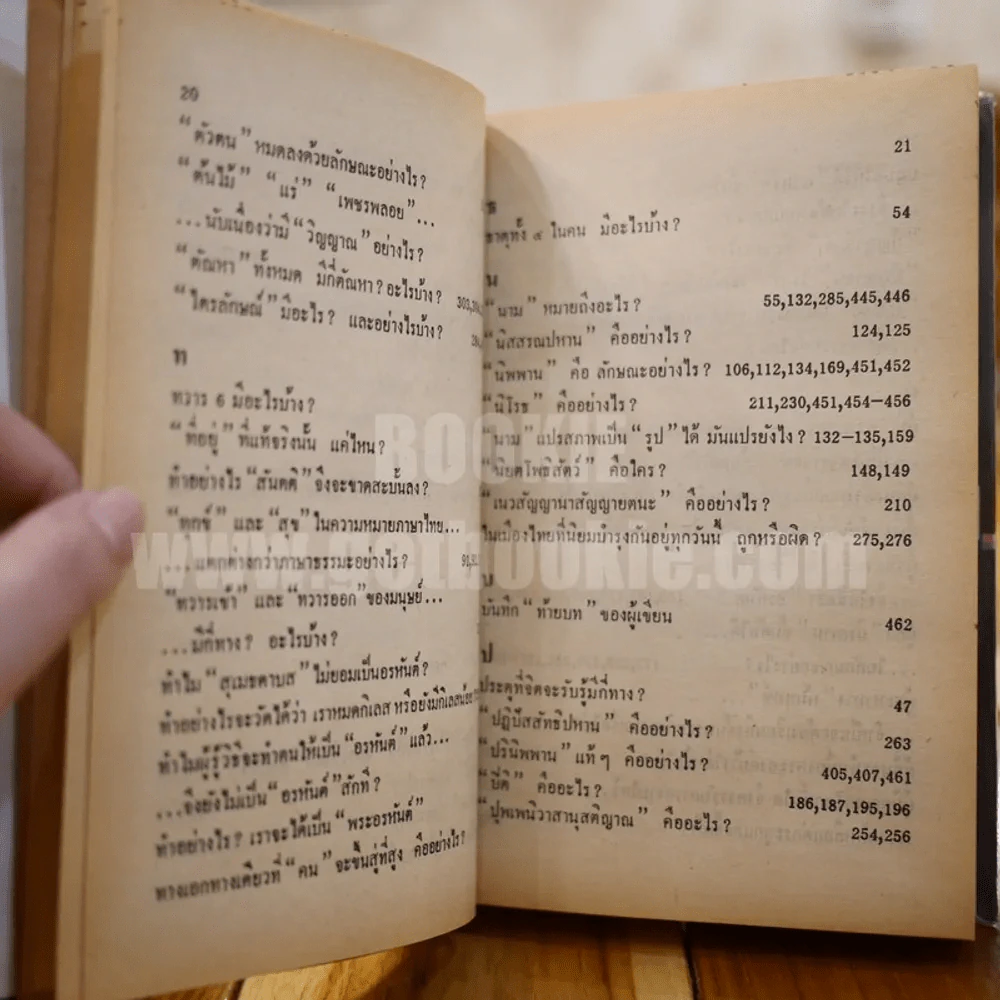 20
“ตัวตน” หมดลงด้วยลักษณะอย่างไร?
“ต้นไม้” “แร่” “เพชรพลอย”...
...นับเนื่องว่ามี “วิญญาณ” อย่างไร?
“ตัณหา” ทั้งหมด มีกี่ตัณหา? อะไรบ้าง?
“ไตรลักษณ์” มีอะไร? และอย่างไรบ้าง?
ท
ทวาร 6 มีอะไรบ้าง?
“ที่อยู่” ที่แท้จริงนั้น แค่ไหน?
ทำอย่างไร “สันตติ” จึงจะขาดสะบั้นลง?
“ทุกข์” และ “สุข” ในความหมายภาษาไทย...
...แตกต่างกว่าภาษาธรรมะอย่างไร?
“ทวารเข้า” และ “ทวารออก” ของมนุษย์...
...มีกี่ทาง? อะไรบ้าง?
ทำไม “สุเมธดาบส” ไม่ยอมเป็นอรหันต์?
ทำอย่างไรจะวัดได้ว่า เราหมดกิเลส หรือยังมีกิเลส
ทำไมผู้รู้วิธีจะทำตนให้เป็น “อรหันต์” แล้ว...
...จึงยังไม่เป็น “อรหันต์” สักที?
ทำอย่างไร? เราจะได้เป็น “พระอรหันต์”
ทางเอกทางเดียวที่ “คน” จะขึ้นสู่ที่สูง คืออย่างไร?
21
ธ
ธาตุทั้ง ๔ ในคน มีอะไรบ้าง? 54
น
“นาม” หมายถึงอะไร? 55,132,285,445,446
“นิสสรณปหาน” คืออย่างไร? 124,125
“นิพพาน” คือ ลักษณะอย่างไร? 106,112,134,169,451,452
“นิโรธ” คืออย่างไร? 211,230,451,454—456
“นาม” แปรสภาพเป็น “รูป” ได้ มันแปรยังไง? 132—135,159
“นิยตโพธิสัตว์” คือใคร? 148,149
“เนวสัญญานาสัญญายตนะ” คืออย่างไร? 210
ในเมืองไทยที่นิยมบำรุงกันอยู่ทุกวันนี้ ถูกหรือผิด? 275,276
บ
บันทึก “ท้ายบท” ของผู้เขียน 462
ป
ประตูที่จิตจะรับรู้มีกี่ทาง? 47
“ปฏิปัสสัทธิปหาน” คืออย่างไร? 263
“ปรินิพพาน” แท้ๆ คืออย่างไร? 405,407,461
“ปีติ” คืออะไร? 186,187,195,196
“ปุพเพนิวาสานุสติญาณ” คืออะไร? 254,256
BOOKIE
www.gotbookie.com